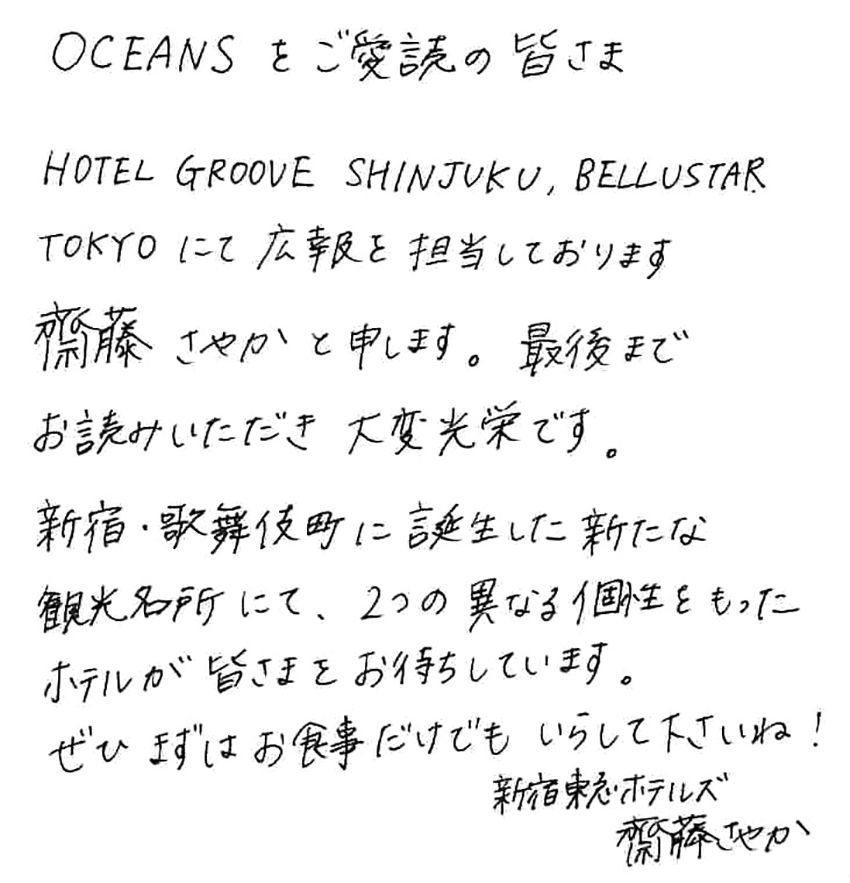 OCEANS をご愛読の皆さま
HOTEL GROOVE SHINJUKU, BELLUSTAR
TOKYO にて 広報を 担当しております
齋藤 さやか と申します。最後まで
お読みいただき 大変光栄です。
新宿・歌舞伎町に誕生した新たな
観光名所にて、2つの異なる個性をもった
ホテルが皆さまをお待ちしています。
ぜひ まずはお食事だけでも いらして下さいね！
新宿東急ホテルズ
齋藤さやか